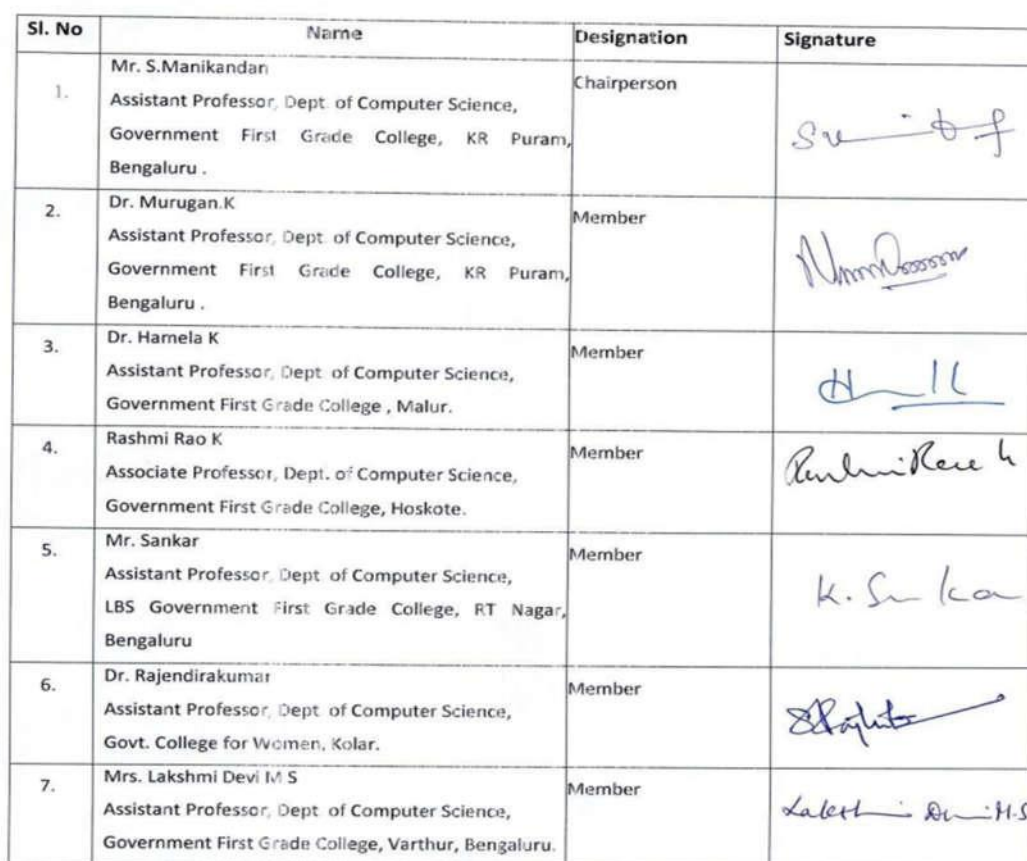 Sl. No Name Designation Signature
1. Mr. S.Manikandan Chairperson
Assistant Professor, Dept. of Computer Science,
Government First Grade College, KR Puram,
Bengaluru .
2. Dr. Murugan.K Member
Assistant Professor, Dept. of Computer Science,
Government First Grade College, KR Puram,
Bengaluru .
3. Dr. Hamela K Member
Assistant Professor, Dept. of Computer Science,
Government First Grade College , Malur.
4. Rashmi Rao K Member
Associate Professor, Dept. of Computer Science,
Government First Grade College, Hoskote.
5. Mr. Sankar Member
Assistant Professor, Dept. of Computer Science, K. Sankar
LBS Government First Grade College, RT Nagar,
Bengaluru
6. Dr. Rajendirakumar Member
Assistant Professor, Dept of Computer Science,
Govt. College for Women, Kolar.
7. Mrs. Lakshmi Devi M S Member
Assistant Professor, Dept of Computer Science, Lakshmi Devi M.S
Government First Grade College, Varthur, Bengaluru.